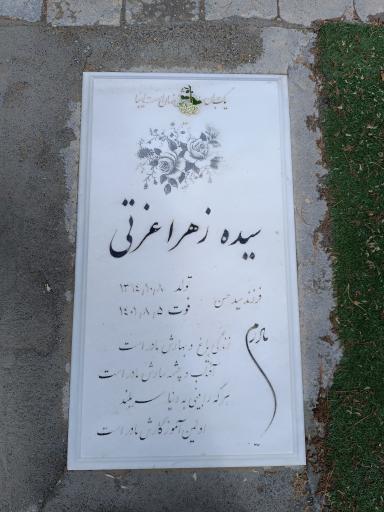 سیده زهرا عزتی
فرزند سید حسن
تولد ۱۳۱۴/۱۰/۸
فوت ۱۴۰۱/۸/۵
مادرم
زندگی باغ و بهارش مادر است
آفتاب و پشه سارش مادر است
هر که زیبایی به دنیا
اولین آموزگارش مادر است